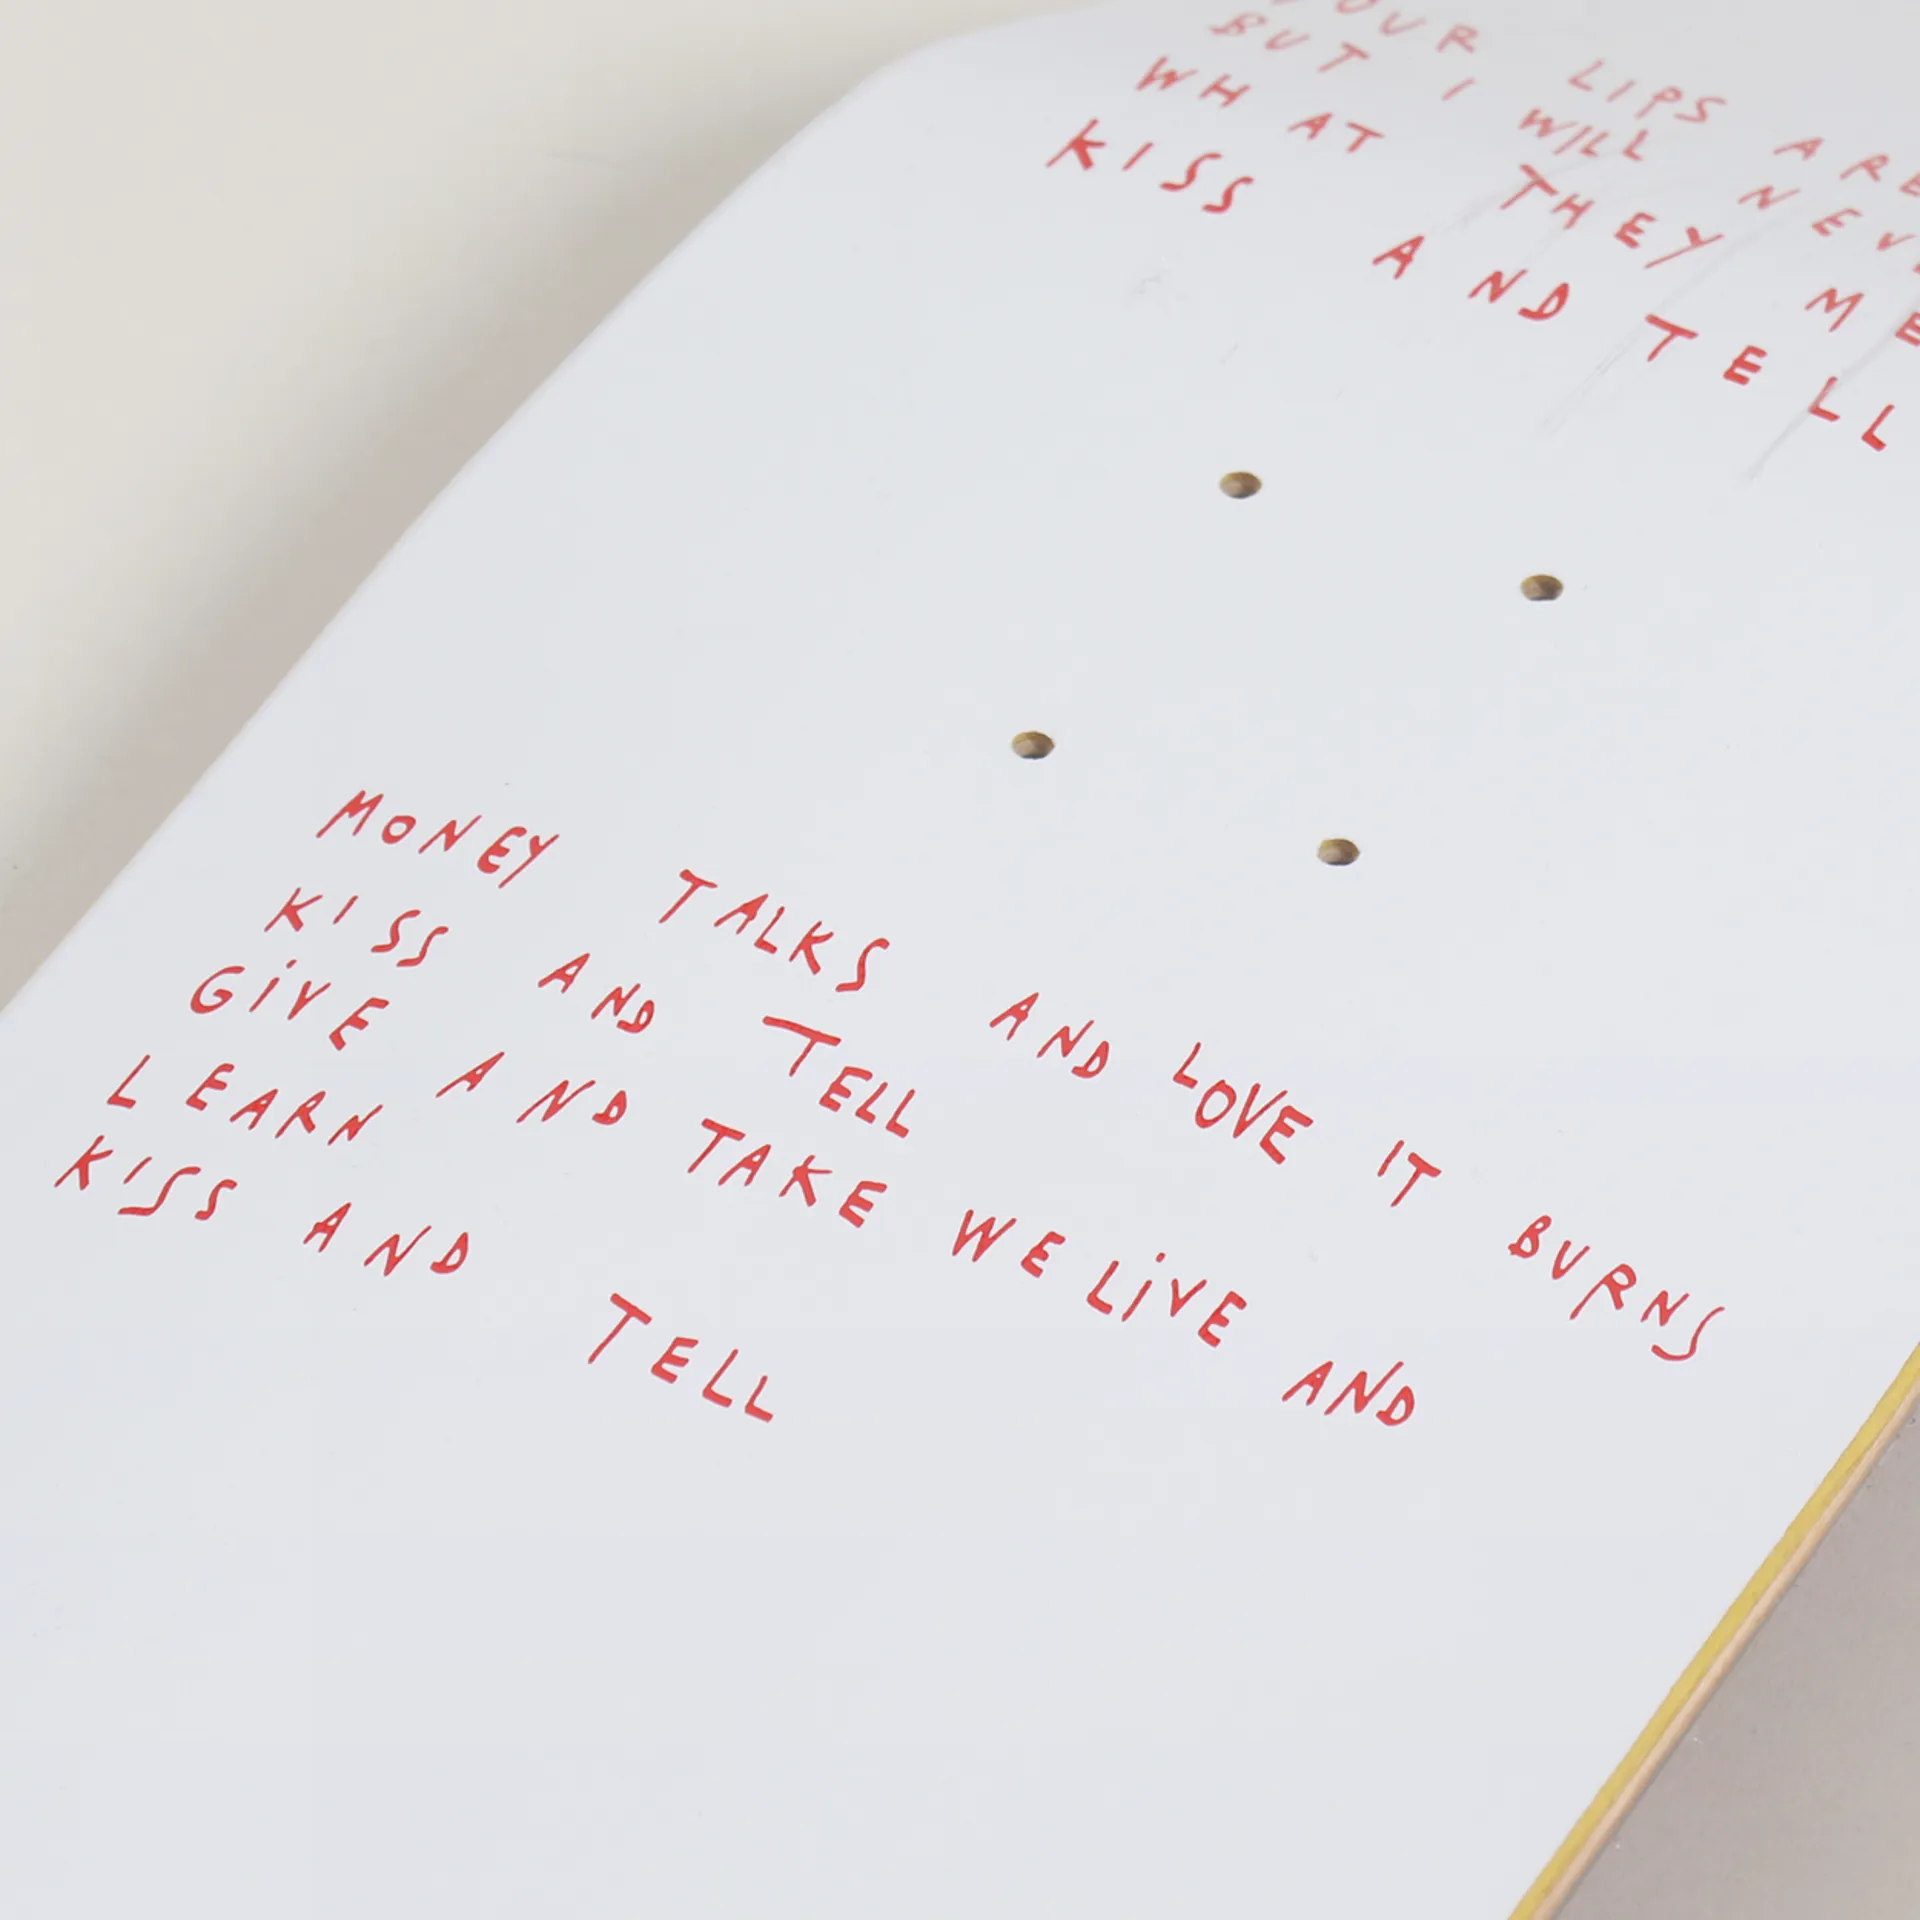 LIPS ARE
BUT I WILL
WHAT THEY
KISS AND TELL
MONEY TALKS AND LOVE IT BURNS
KISS AND TELL
GIVE AND TAKE WE LIVE AND
LEARN
KISS AND TELL